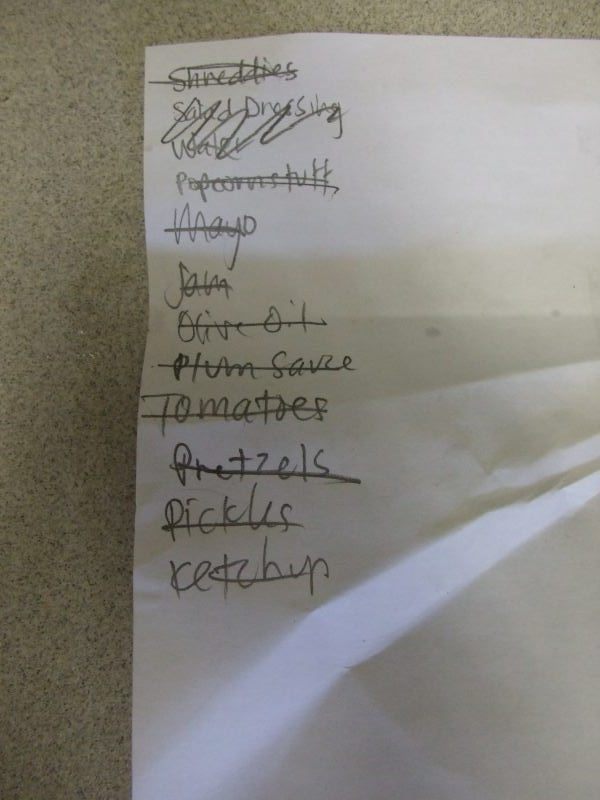 Shreddies
Salad Dressing
Water
Popcorn stuff
Mayo
Jam
Olive Oil
Plum Sauce
Tomatoes
Pretzels
Pickles
Ketchup